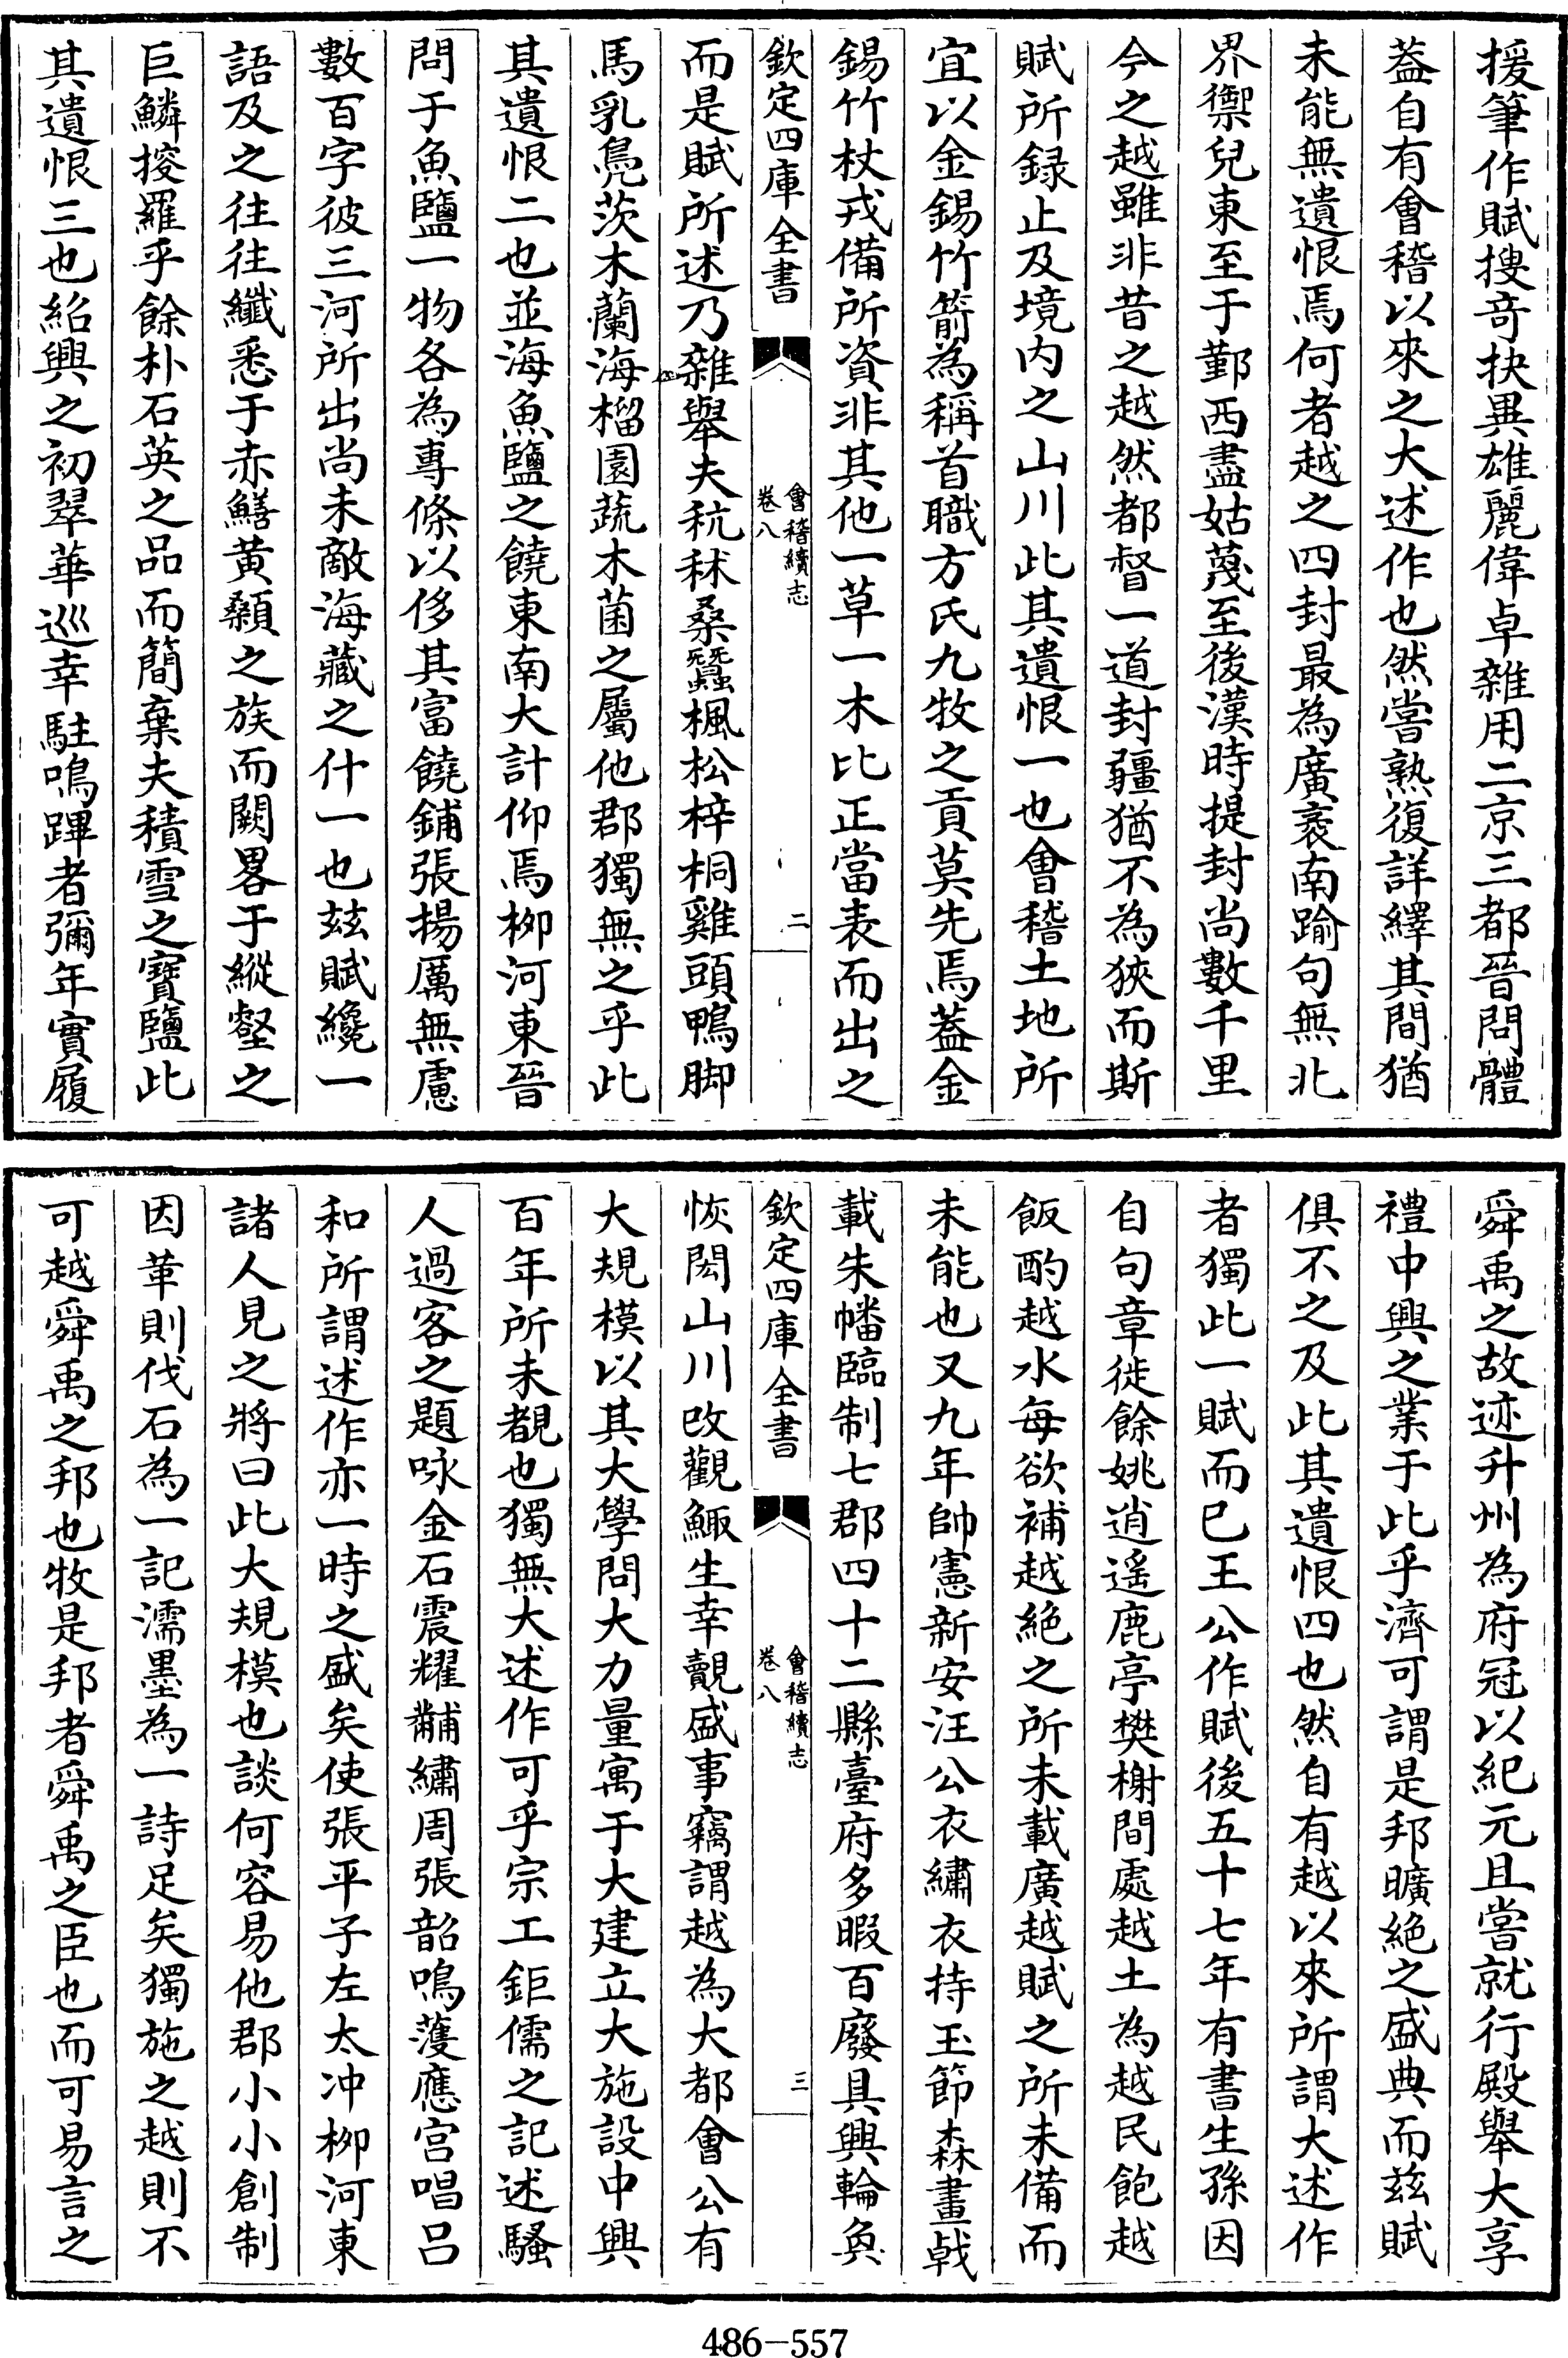 援筆作賦搜奇抉異雄麗偉卓雜用二京三都晉問體
蓋自有會稽以來之大述作也然嘗熟復詳繹其間猶
未能無遺恨焉何者越之四封最為廣袤南踰句無北
界禦兒東至于鄞西盡姑蔑至後漢時提封尚數千里
今之越雖非昔之越然都督一道封疆猶不為狹而斯
賦所録止及境内之山川此其遺恨一也會稽土地所
宜以金錫竹箭為稱首職方氏九牧之貢莫先焉蓋金
錫竹杖戎備所資非其他一草一木比正當表而出之
欽定四庫全書
會稽續志
卷八
二
而是賦所述乃雜舉夫秔秫桑蠶楓松梓桐雞頭鴨脚
馬乳鳧茨木蘭海榴園蔬木菌之屬他郡獨無之乎此
其遺恨二也並海魚鹽之饒東南大計仰焉柳河東晉
問于魚鹽一物各為專條以侈其富饒鋪張揚厲無慮
數百字彼三河所出尚未敵海藏之什一也兹賦纔一
語及之往往纖悉于赤鱔黄顙之族而闕畧于縱壑之
巨鱗摉羅乎餘朴石英之品而簡棄夫積雪之寶鹽此
其遺恨三也紹興之初翠華巡幸駐鳴蹕者彌年實履
舜禹之故迹升州為府冠以紀元且嘗就行殿舉大享
禮中興之業于此乎濟可謂是邦曠絶之盛典而兹賦
俱不之及此其遺恨四也然自有越以來所謂大述作
者獨此一賦而已王公作賦後五十七年有書生孫因
自句章徙餘姚逍遥鹿亭樊榭間處越土為越民飽越
飯酌越水每欲補越絶之所未載廣越賦之所未備而
未能也又九年帥憲新安汪公衣繡衣持玉節森畫戟
載朱幡臨制七郡四十二縣臺府多暇百廢具興輪奐
欽定四庫全書
會稽續志
卷八
三
恢閎山川改觀鯫生幸覿盛事竊謂越為大都會公有
大規模以其大學問大力量寓于大建立大施設中興
百年所未覩也獨無大述作可乎宗工鉅儒之記述騷
人過客之題咏金石震耀黼繡周張韶鳴濩應宫唱吕
和所謂述作亦一時之盛矣使張平子左太冲柳河東
諸人見之將曰此大規模也談何容易他郡小小創制
因革則伐石為一記濡墨為一詩足矣獨施之越則不
可越舜禹之邦也牧是邦者舜禹之臣也而可易言之
486-557